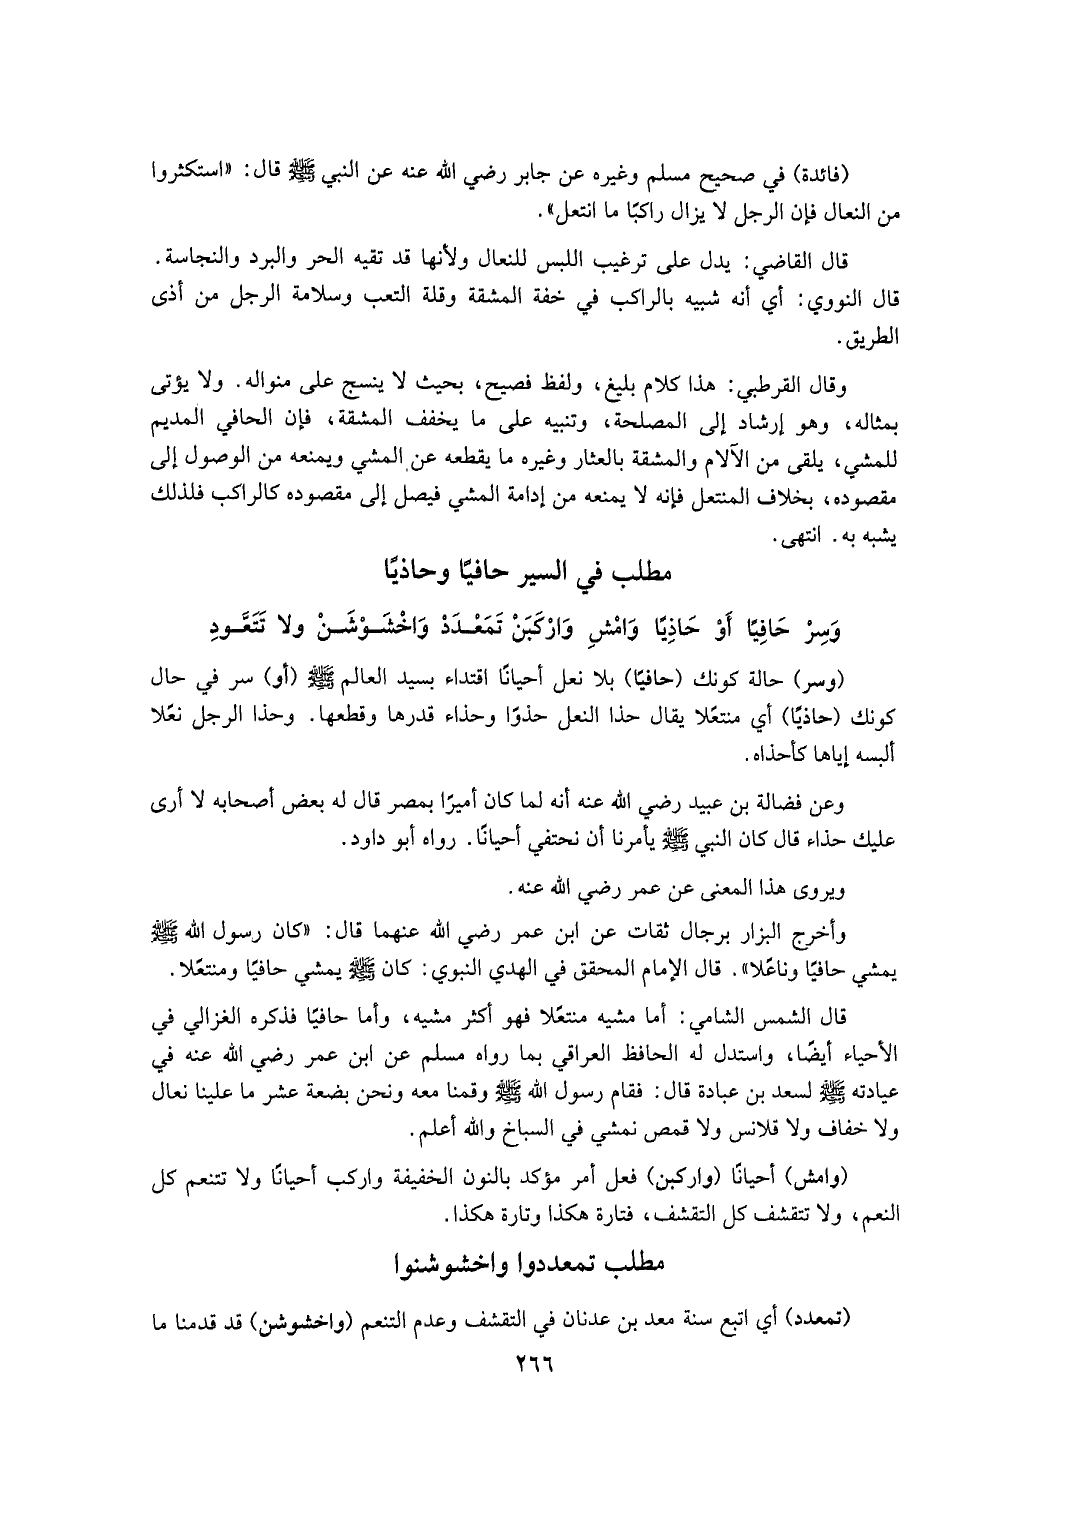 (فائدة) في صحيح مسلم وغيره عن جابر رضي الله عنه عن النبي ﷺ قال: «استكثروا
من النعال فإن الرجل لا يزال راكبًا ما انتعل».
قال القاضي: يدل على ترغيب اللبس للنعال ولأنها قد تقيه الحر والبرد والنجاسة.
قال النووي: أي أنه شبيه بالراكب في خفة المشقة وقلة التعب وسلامة الرجل من أذى
الطريق.
وقال القرطبي: هذا كلام بليغ، ولفظ فصيح، بحيث لا ينسج على منواله. ولا يؤتى
بمثاله، وهو إرشاد إلى المصلحة، وتنبيه على ما يخفف المشقة، فإن الحافي المديم
للمشي، يلقى من الآلام والمشقة بالعثار وغيره ما يقطعه عن المشي ويمنعه من الوصول إلى
مقصوده، بخلاف المنتعل فإنه لا يمنعه من إدامة المشي فيصل إلى مقصوده كالراكب فلذلك
يشبه به. انتهى.
مطلب في السير حافيًا وحاذيًا
وَسِرْ حَافِيًا أَوْ حَاذِيًا وَامْشِ وَارْكَبَنْ تَمَعْـدَدْ وَاخْشَـوْشَـنْ ولا تَتَعَّـودِ
(وسر) حالة كونك (حافيًا) بلا نعل أحيانًا اقتداء بسيد العالم ﷺ (أو) سر في حال
كونك (حاذيًا) أي منتعًلا يقال حذا النعل حذوًا وحذاء قدرها وقطعها. وحذا الرجل نعًلا
ألبسه إياها كأحذاه.
وعن فضالة بن عبيد رضي الله عنه أنه لما كان أميرًا بمصر قال له بعض أصحابه لا أرى
عليك حذاء قال كان النبي ﷺ يأمرنا أن نحتفي أحيانًا. رواه أبو داود.
ويروى هذا المعنى عن عمر رضي الله عنه.
وأخرج البزار برجال ثقات عن ابن عمر رضي الله عنهما قال: «كان رسول الله ﷺ
يمشي حافيًا وناعًلا». قال الإمام المحقق في الهدي النبوي: كان ﷺ يمشي حافيًا ومنتعًلا.
قال الشمس الشامي: أما مشيه منتعًلا فهو أكثر مشيه، وأما حافيًا فذكره الغزالي في
الأحياء أيضًا، واستدل له الحافظ العراقي بما رواه مسلم عن ابن عمر رضي الله عنه في
عيادته ﷺ لسعد بن عبادة قال: فقام رسول الله ﷺ وقمنا معه ونحن بضعة عشر ما علينا نعال
ولا خفاف ولا قلانس ولا قمص نمشي في السباخ والله أعلم.
(وامش) أحيانًا (واركبن) فعل أمر مؤكد بالنون الخفيفة واركب أحيانًا ولا تتنعم كل
النعم، ولا تتقشف كل التقشف، فتارة هكذا وتارة هكذا.
مطلب تمعددوا واخشوشنوا
(تمعدد) أي اتبع سنة معد بن عدنان في التقشف وعدم التنعم (واخشوشن) قد قدمنا ما
٢٦٦